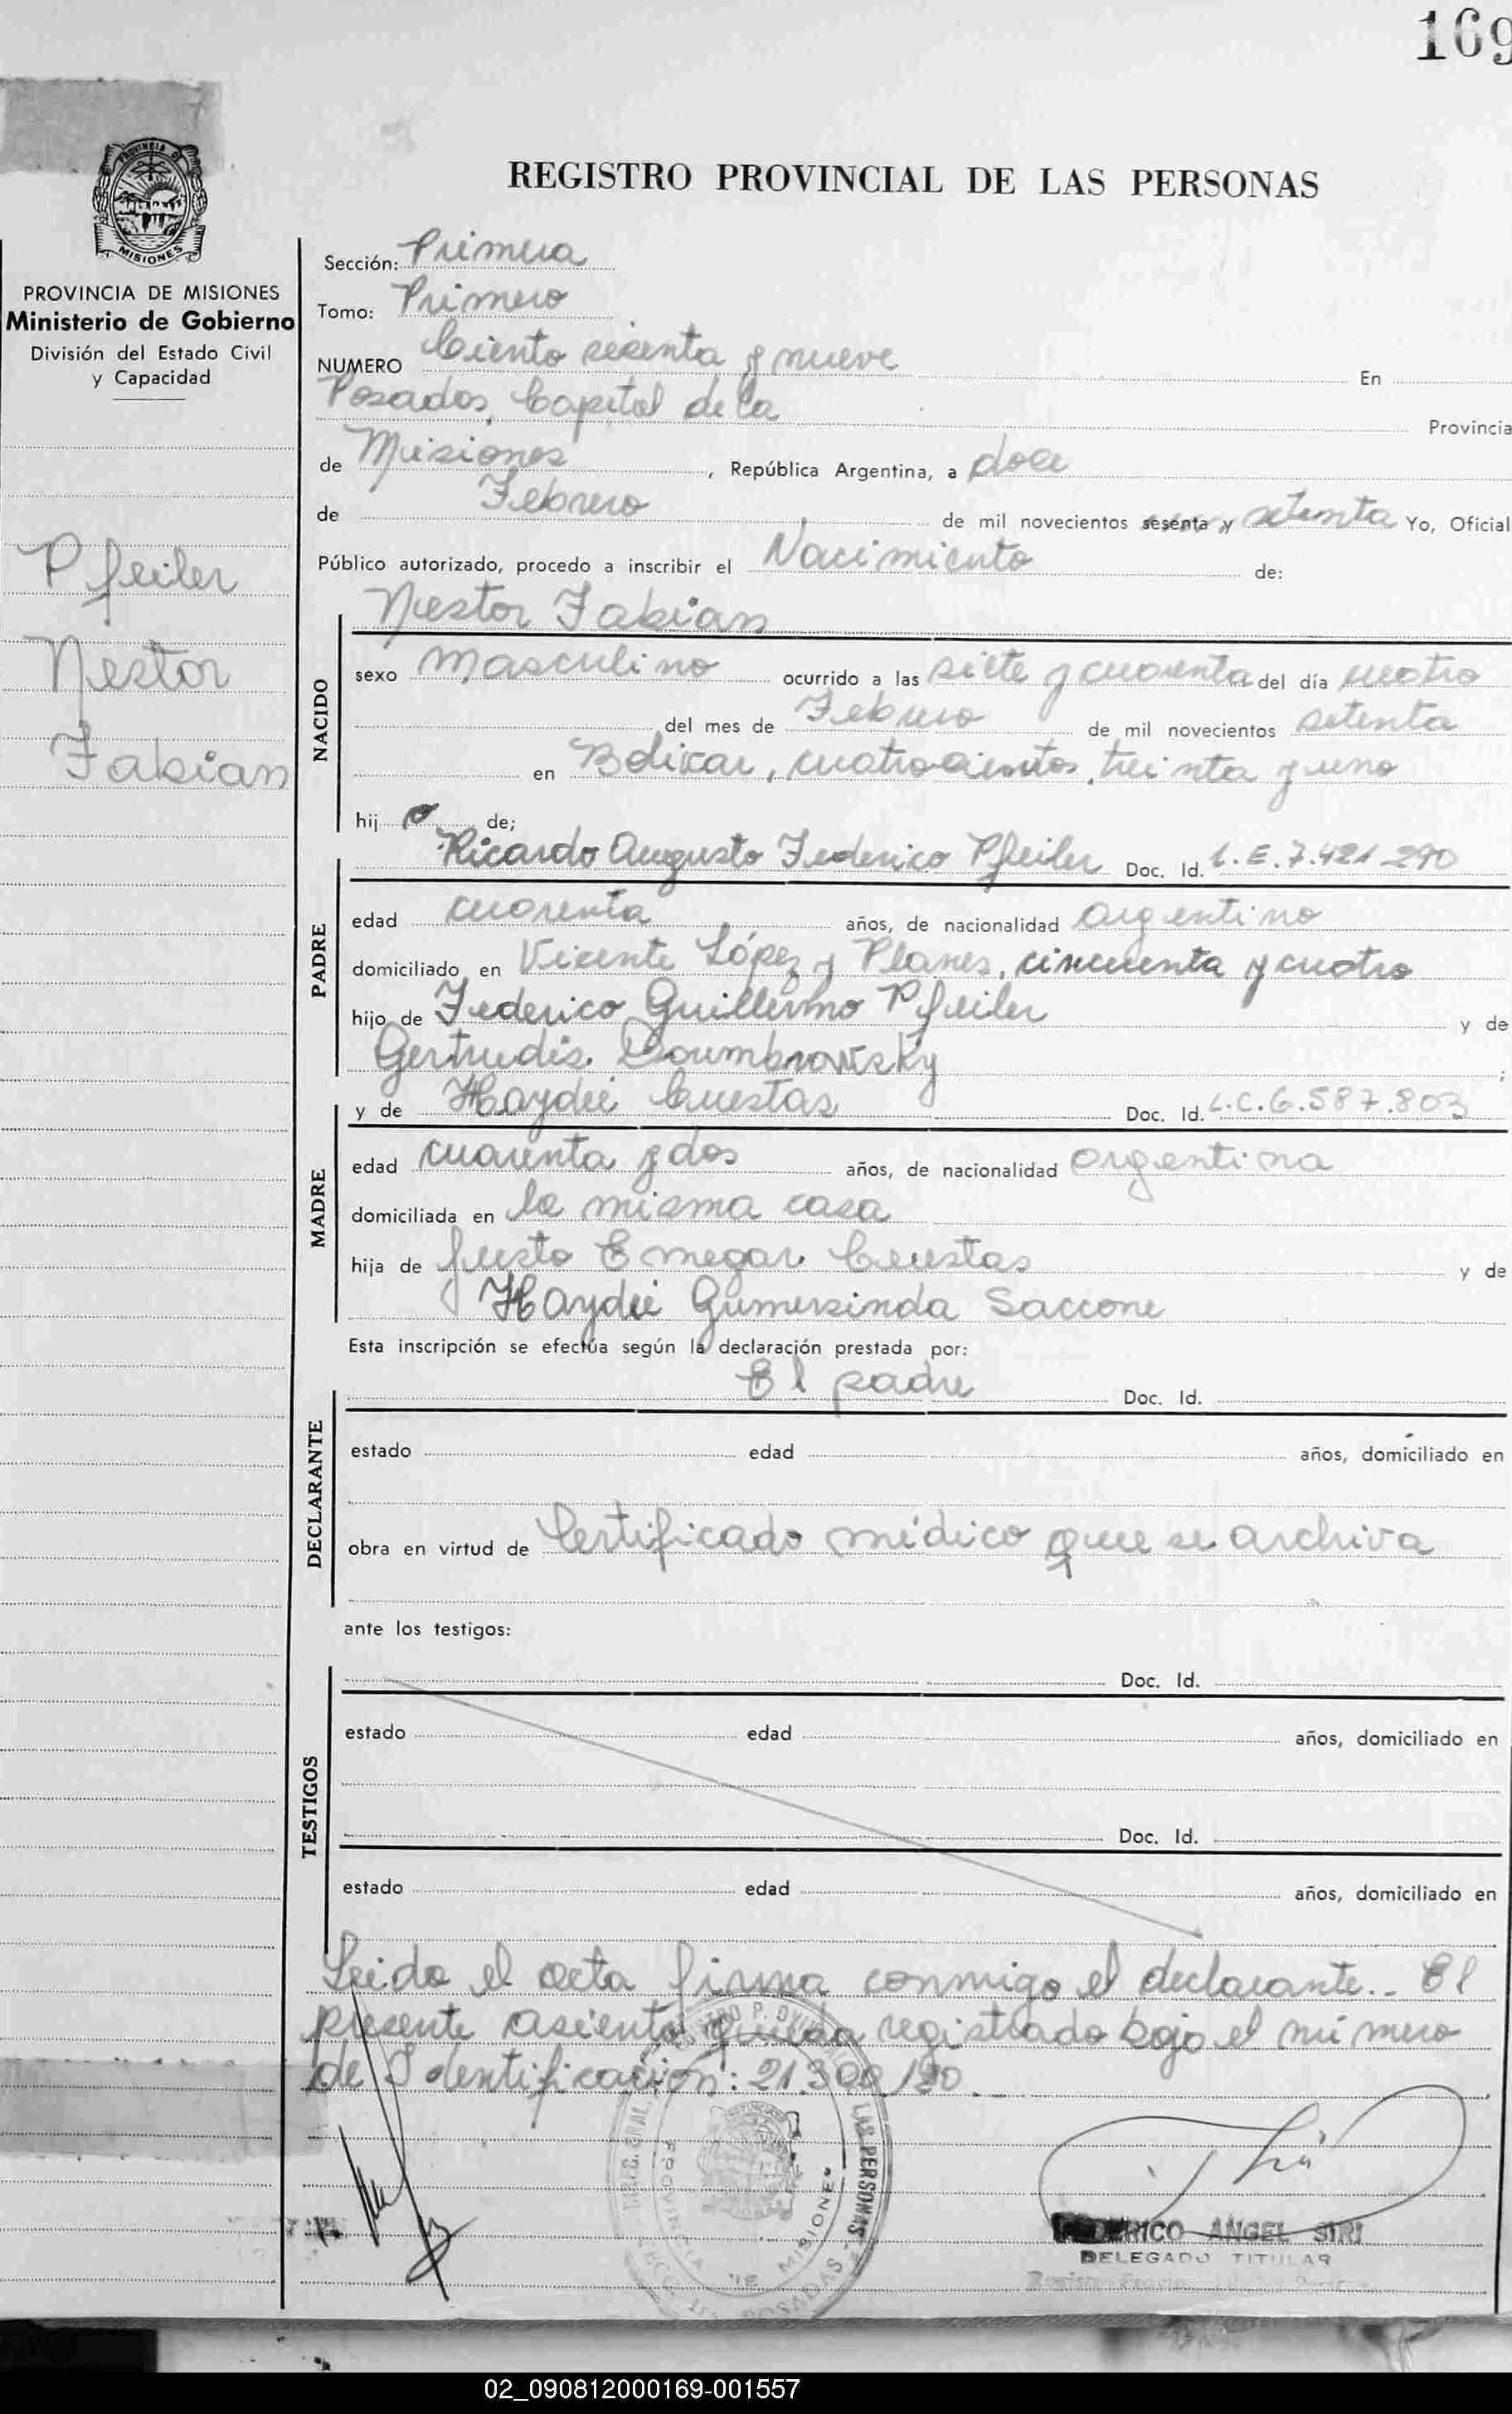 169
REGISTRO PROVINCIAL DE LAS PERSONAS
PROVINCIA DE
MISIONES
PROVINCIA DE MISIONES
Ministerio de Gobierno
División del Estado Civil
y Capacidad
Pfeiler
Nestor
Fabian
Sección: Primera
Tomo: Primero
NUMERO Ciento sesenta y nueve En
Posadas, Capital de la Provincia
de Misiones, República Argentina, a doce
de Febrero de mil novecientos sesenta y setenta Yo, Oficial
Público autorizado, procedo a inscribir el Nacimiento de:
Nestor Fabian
NACIDO
sexo masculino ocurrido a las siete y cuarenta del día cuatro
del mes de Febrero de mil novecientos setenta
en Bolivar, cuatrocientos, treinta y uno
hij o de;
Ricardo Augusto Federico Pfeiler Doc. Id. L.E.7.421.290
PADRE
edad cuarenta años, de nacionalidad argentino
domiciliado en Vicente López y Planes, cincuenta y cuatro
hijo de Federico Guillermo Pfeiler y de
Gertrudis ;
y de Haydée Cuestas Doc. Id. L.C.6.587.803
MADRE
edad cuarenta y dos años, de nacionalidad argentina
domiciliada en la misma casa
hija de Justo Cuestas y de
Haydée Gumersinda Saccone
Esta inscripción se efectúa según la declaración prestada por:
El padre Doc. Id.
DECLARANTE
estado edad años, domiciliado en
obra en virtud de Certificado médico que se archiva
ante los testigos:
Doc. Id.
TESTIGOS
estado edad años, domiciliado en
Doc. Id.
estado edad años, domiciliado en
Leida el acta firma conmigo el declarante.. El
presente asiento queda registrado bajo el número
de Identificación: 21.300.190
LAS PERSONAS
PROVINCIA DE MISIONES
POSADAS
FEDERICO ANGEL SIRI
DELEGADO TITULAR
02_090812000169-001557